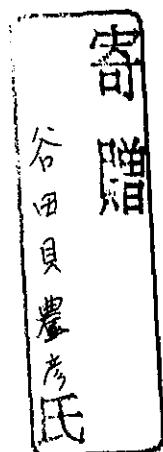 寄贈
谷田貝豊彦氏